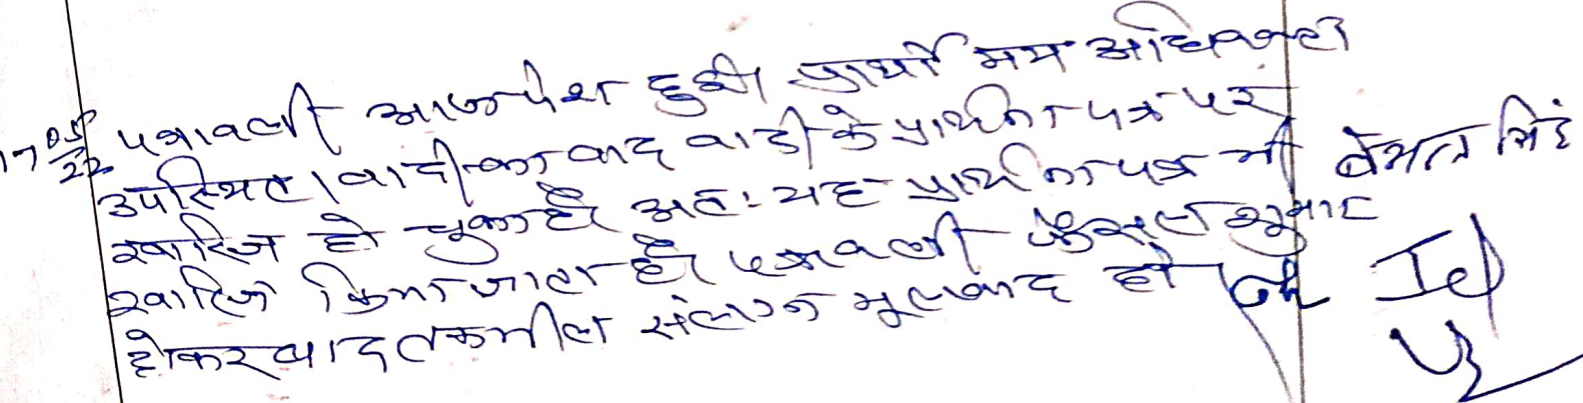 17/05/22 पत्रावली आज पेश हुई। प्रार्थी मय अधिवक्ता
उपस्थित। वादी का वाद वादी के प्रार्थना पत्र पर
खारिज हो चुका है अतः यह प्रार्थना पत्र भी
खारिज किया जाता है। पत्रावली फैसल शुमार
होकर बाद तकमील संलग्न मूलवाद हो